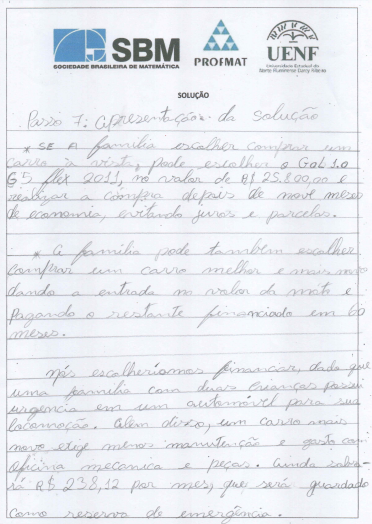 SBM
SOCIEDADE BRASILEIRA DE MATEMÁTICA
PROFMAT
UENF
Universidade Estadual do
Norte Fluminense Darcy Ribeiro
SOLUÇÃO
Passo 7: Apresentação da solução
* SE A família escolher comprar um
carro à vista, pode escolher o Gol 1.0
G5 flex 2011, no valor de R$ 25.800,00 e
realizar a compra depois de nove meses
de economia, evitando juros e parcelas.
* A família pode também escolher
comprar um carro melhor e mais novo
dando a entrada no valor da moto e
pagando o restante financiado em 60
meses.
Nós escolheríamos financiar, dado que
uma família com duas crianças possui
urgência em um automóvel para sua
locomoção. Além disso, um carro mais
novo exige menos manutenção e gasto com
oficina mecanica e peças. Ainda sobra-
rá R$ 238,12 por mes, que será guardado
como reserva de emergência.